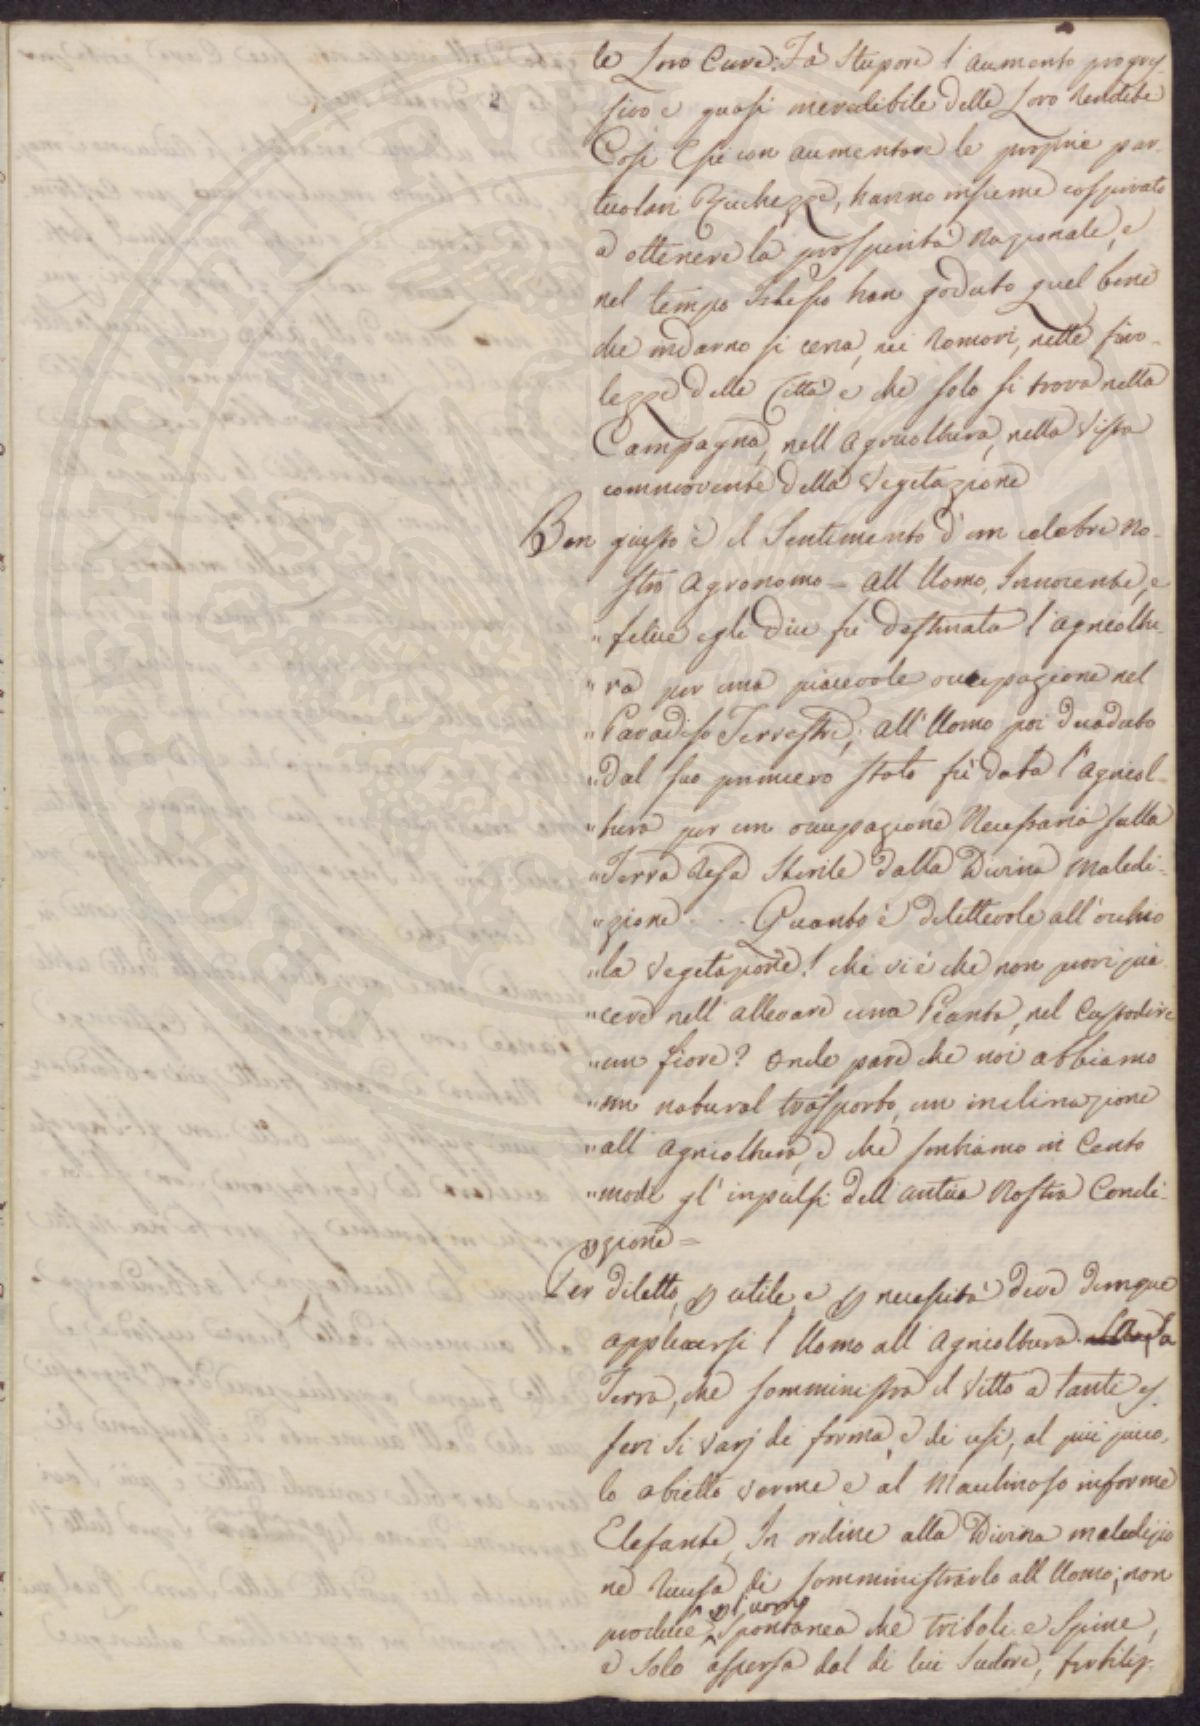 le Loro Cure: Fà Stupore l'aumento progres-
sivo e quasi incredibile delle Loro Rendite
Così Essi con aumentare le proprie par-
ticolari Ricchezze, hanno insieme cospirato
a ottenere la prosperità Nazionale, e
nel tempo Istesso han goduto quel bene
che indarno si cerca, nei Romori, nelle fivo-
lezze delle Città e che solo si trova nella
Campagna, nell'agricoltura, nella Vista
commovente della Vegetazione
Ben giusto è il Sentimento d'un celebre No-
stro Agronomo = all'Uomo, Innocente, e
"felice egli dice fù destinata l'agricoltu-
"ra per una piacevole occupazione nel
"Paradiso Terrestre; all'Uomo poi decaduto
"dal suo primiero stato fù data l'agricol-
"tura per un occupazione Necessaria sulla
"Terra Resa Sterile dalla Divina Maledi-
"zione . . . Quanto è dilettevole all'occhio
"la Vegetazione! chi vi è che non provi pia-
"cere nell'allevare una Pianta, nel Custodire
"un fiore? onde pare che noi abbiamo
"un natural trasporto, un inclinazione
"all'agricoltura, e che sentiamo in Cento
"modi gl'inpulsi dell'antica Nostra Condi-
"zione =
Per diletto, p utile, e p necessità deve dunque
applicarsi l'Uomo all'Agricoltura. La
Terra, che somministra il Vitto a tanti es-
seri Sì Varj di forma, e di usi, al più picco-
lo abietto verme e al Macchinoso informe
Elefante, In ordine alla Divina maledizio
ne ricusa di somministrarlo all'Uomo; non
produce p l'uomo Spontanea che triboli e Spine,
e Solo aspersa dal di lui Sudore, fertiliz-